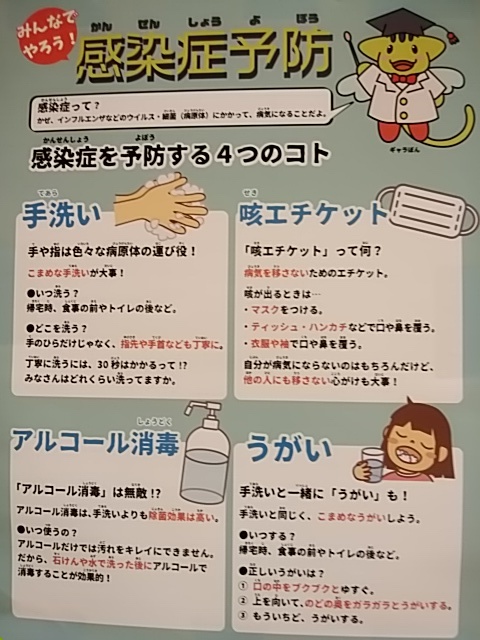 みんなで
やろう！
かん せん しょう よ ぼう
感染症予防
感染症って？
かぜ、インフルエンザなどのウイルス・細菌（病原体）にかかって、病気になることだよ。
ギャラぽん
かんせんしょう よぼう
感染症を予防する４つのコト
てあら
手洗い
手や指は色々な病原体の運び役！
こまめな手洗いが大事！
●いつ洗う？
帰宅時、食事の前やトイレの後など。
●どこを洗う？
手のひらだけじゃなく、指先や手首なども丁寧に。
丁寧に洗うには、30秒はかかるって!?
みなさんはどれくらい洗ってますか。
せき
咳エチケット
「咳エチケット」って何？
病気を移さないためのエチケット。
咳が出るときは…
・マスクをつける。
・ティッシュ・ハンカチなどで口や鼻を覆う。
・衣服や袖で口や鼻を覆う。
自分が病気にならないのはもちろんだけど、
他の人にも移さない心がけも大事！
しょうどく
アルコール消毒
「アルコール消毒」は無敵!?
アルコール消毒は、手洗いよりも除菌効果は高い。
●いつ使うの？
アルコールだけでは汚れをキレイにできません。
だから、石けんや水で洗った後にアルコールで
消毒することが効果的！
うがい
手洗いと一緒に「うがい」も！
手洗いと同じく、こまめなうがいしよう。
●いつする？
帰宅時、食事の前やトイレの後など。
●正しいうがいは？
① 口の中をブクブクとゆすぐ。
② 上を向いて、のどの奥をガラガラとうがいする。
③ もういちど、うがいする。